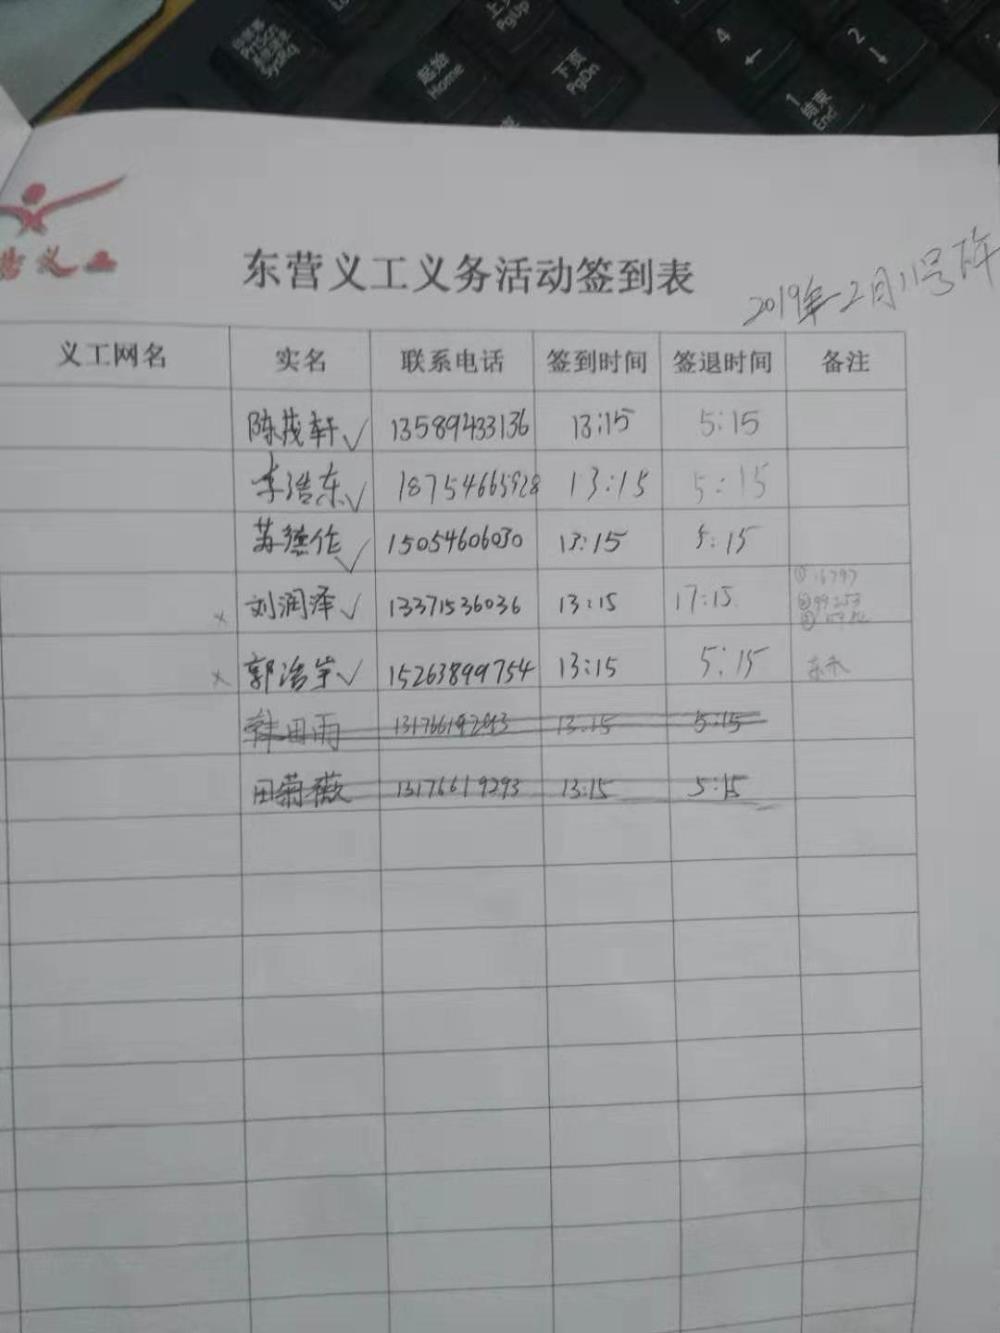 起始
Home
上页
PgUp
下页
PgDn
4
←
2
↓
1
结束
End
营义工
东营义工义务活动签到表
2019年2月11号下午
义工网名 实名 联系电话 签到时间 签退时间 备注
陈茂轩√ 13589433136 13:15 5:15
李浩东√ 18754665928 13:15 5:15
苏德佐√ 15054606030 13:15 5:15
× 刘润泽√ 13371536036 13:15 17:15 ① ② ③
× 郭浩√ 15263899754 13:15 5:15
田雨 13:15 5:15
田菊薇 13176619293 13:15 5:15